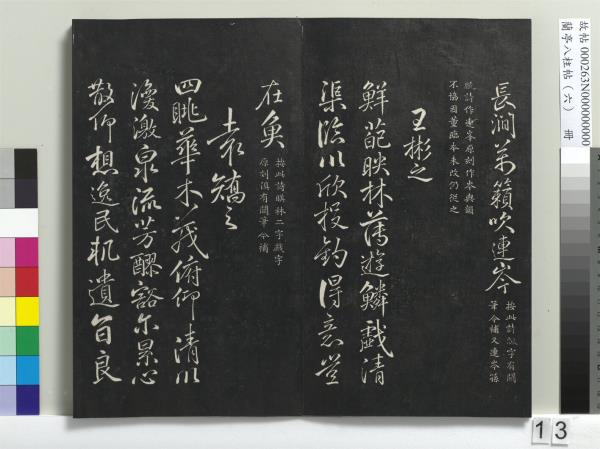 長澗萬籟吹連岑
按此詩字有闕
筆今補又連岑孫
統詩作連峯原刻作岑與韻
不協因董臨本未改仍從之
王彬之
鮮葩映林薄遊鱗戲清
渠臨川欣投釣得意豈
在魚
按此詩映林二字戲字
原刻俱有闕筆今補
袁嶠之
四眺華木茂俯仰清川
渙激泉流芳醪豁尒累心
散仰想逸民軌遺音良
故帖 000263N000000000
蘭亭八柱帖（六） 冊
13